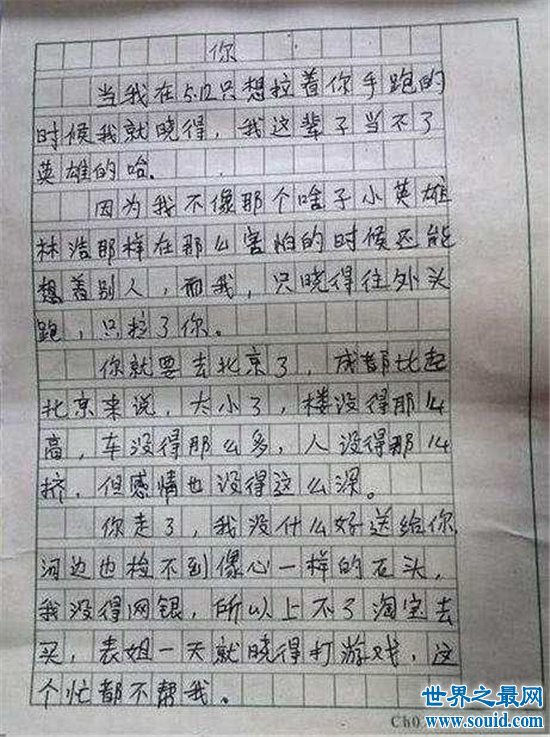 你
当我在5.12只想拉着你手跑的
时候我就晓得，我这辈子当不了
英雄的哈。
因为我不像那个啥子小英雄
林浩那样在那么害怕的时候还能
想着别人，而我，只晓得往外头
跑，只拉了你。
你就要去北京了，成都比起
北京来说，太小了，楼没得那么
高，车没得那么多，人没得那么
挤，但感情也没得这么深。
你走了，我没什么好送给你，
河边也捡不到像心一样的石头，
我没得网银，所以上不了淘宝去
买，表姐一天就晓得打游戏，这
个忙都不帮我。
世界之最网
www.souid.com